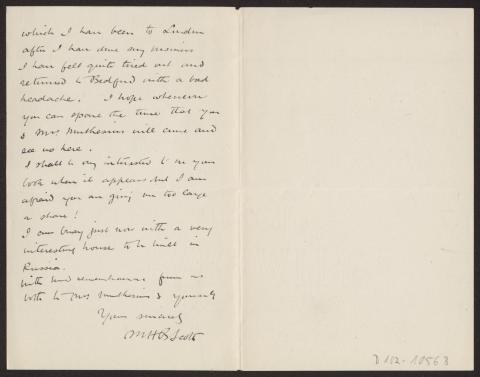 which I have been to London
after I have done my business
I have felt quite tired out and
returned to Bedford with a bad
headache. I hope whenever
you can spare the time that you
& Mrs. Muthesius will come and
see us here.
I shall be very interested to see your
book when it appears but I am
afraid you are giving me too large
a share!
I am busy just now with a very
interesting house to be built in
Russia.
With kind remembrances from us
both to Mrs Muthesius & yourself
Yours sincerely
MHB Scott
D 102-10563